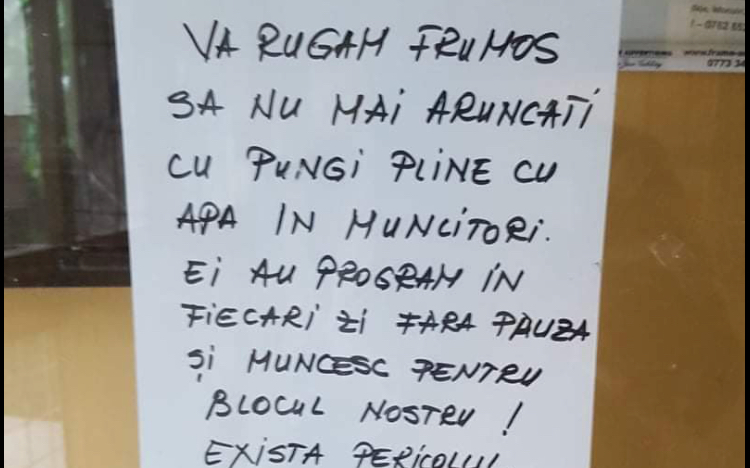 VA RUGAM FRUMOS
SA NU MAI ARUNCATI
CU PUNGI PLINE CU
APA IN MUNCITORI.
EI AU PROGRAM IN
FIECARI ZI FARA PAUZA
ȘI MUNCESC PENTRU
BLOCUL NOSTRU !
EXISTA PERICOLUL
ADVERTISING